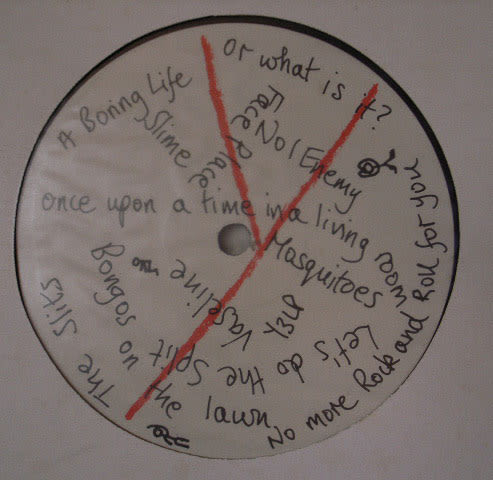 A Boring Life
or what is it?
Slime
Face Place
No 1 Enemy
once upon a time in a living room
Mosquitoes
Vaseline
Bongos on the lawn
Y3LP
Let's do the Split
No more Rock and Roll for you
The Slits